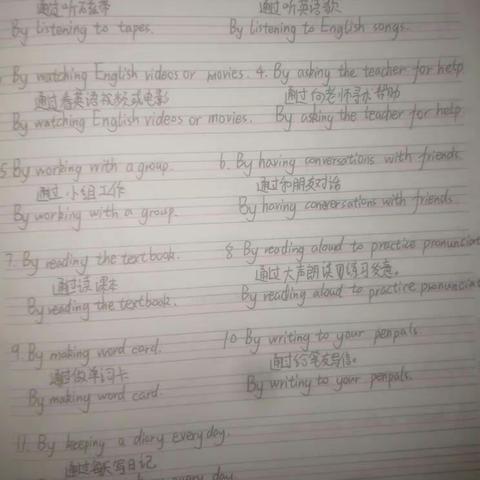 通过听磁带 通过听英语歌
By listening to tapes. By listening to English songs.
By watching English videos or movies. 4. By asking the teacher for help.
通过看英语视频或电影 通过向老师寻求帮助
By watching English videos or movies. By asking the teacher for help.
5. By working with a group. 6. By having conversations with friends.
通过小组工作 通过和朋友对话
By working with a group. By having conversations with friends.
7. By reading the textbook. 8 By reading aloud to practice pronunciat
通过读课本 通过大声朗读来练习发音。
By reading the textbook. By reading aloud to practice pronunciat
9. By making word card. 10. By writing to your penpals.
通过做单词卡 通过给笔友写信。
By making word card. By writing to your penpals.
11. By keeping a diary every day.
通过每天写日记
every day